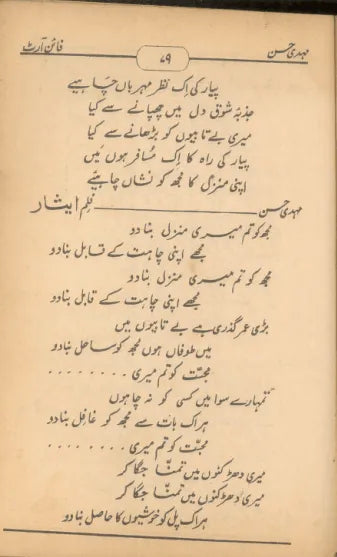 مہدی حسن
۷۹
فائن آرٹ
پیار کی اِک نظر مہرباں چاہیے
جذبۂ شوق دل میں چھپانے سے کیا
میری بے تابیوں کو بڑھانے سے کیا
پیار کی راہ کا اِک مُسافر ہوں میں
اپنی منزل کا مجھ کو نشاں چاہیئے
مہدی حسن ـــــــ فلم ایثار
مجھ کو تم میری منزل بنا دو
مجھے اپنی چاہت کے قابل بنا دو
مجھ کو تم میری منزل بنا دو
مجھے اپنی چاہت کے قابل بنا دو
بڑی عمر گذری ہے بے تابیوں میں
میں طوفاں ہوں مجھ کو ساحل بنا دو
محبّت کو تم میری ........
تمہارے سوا میں کسی کو نہ چاہوں
ہر اک بات سے مجھ کو غافل بنا دو
محبّت کو تم میری ........
میری دھڑکنوں میں تمنّا جگا کر
میری دھڑکنوں میں تمنّا جگا کر
ہر اک پل کو خوشیوں کا حاصل بنا دو